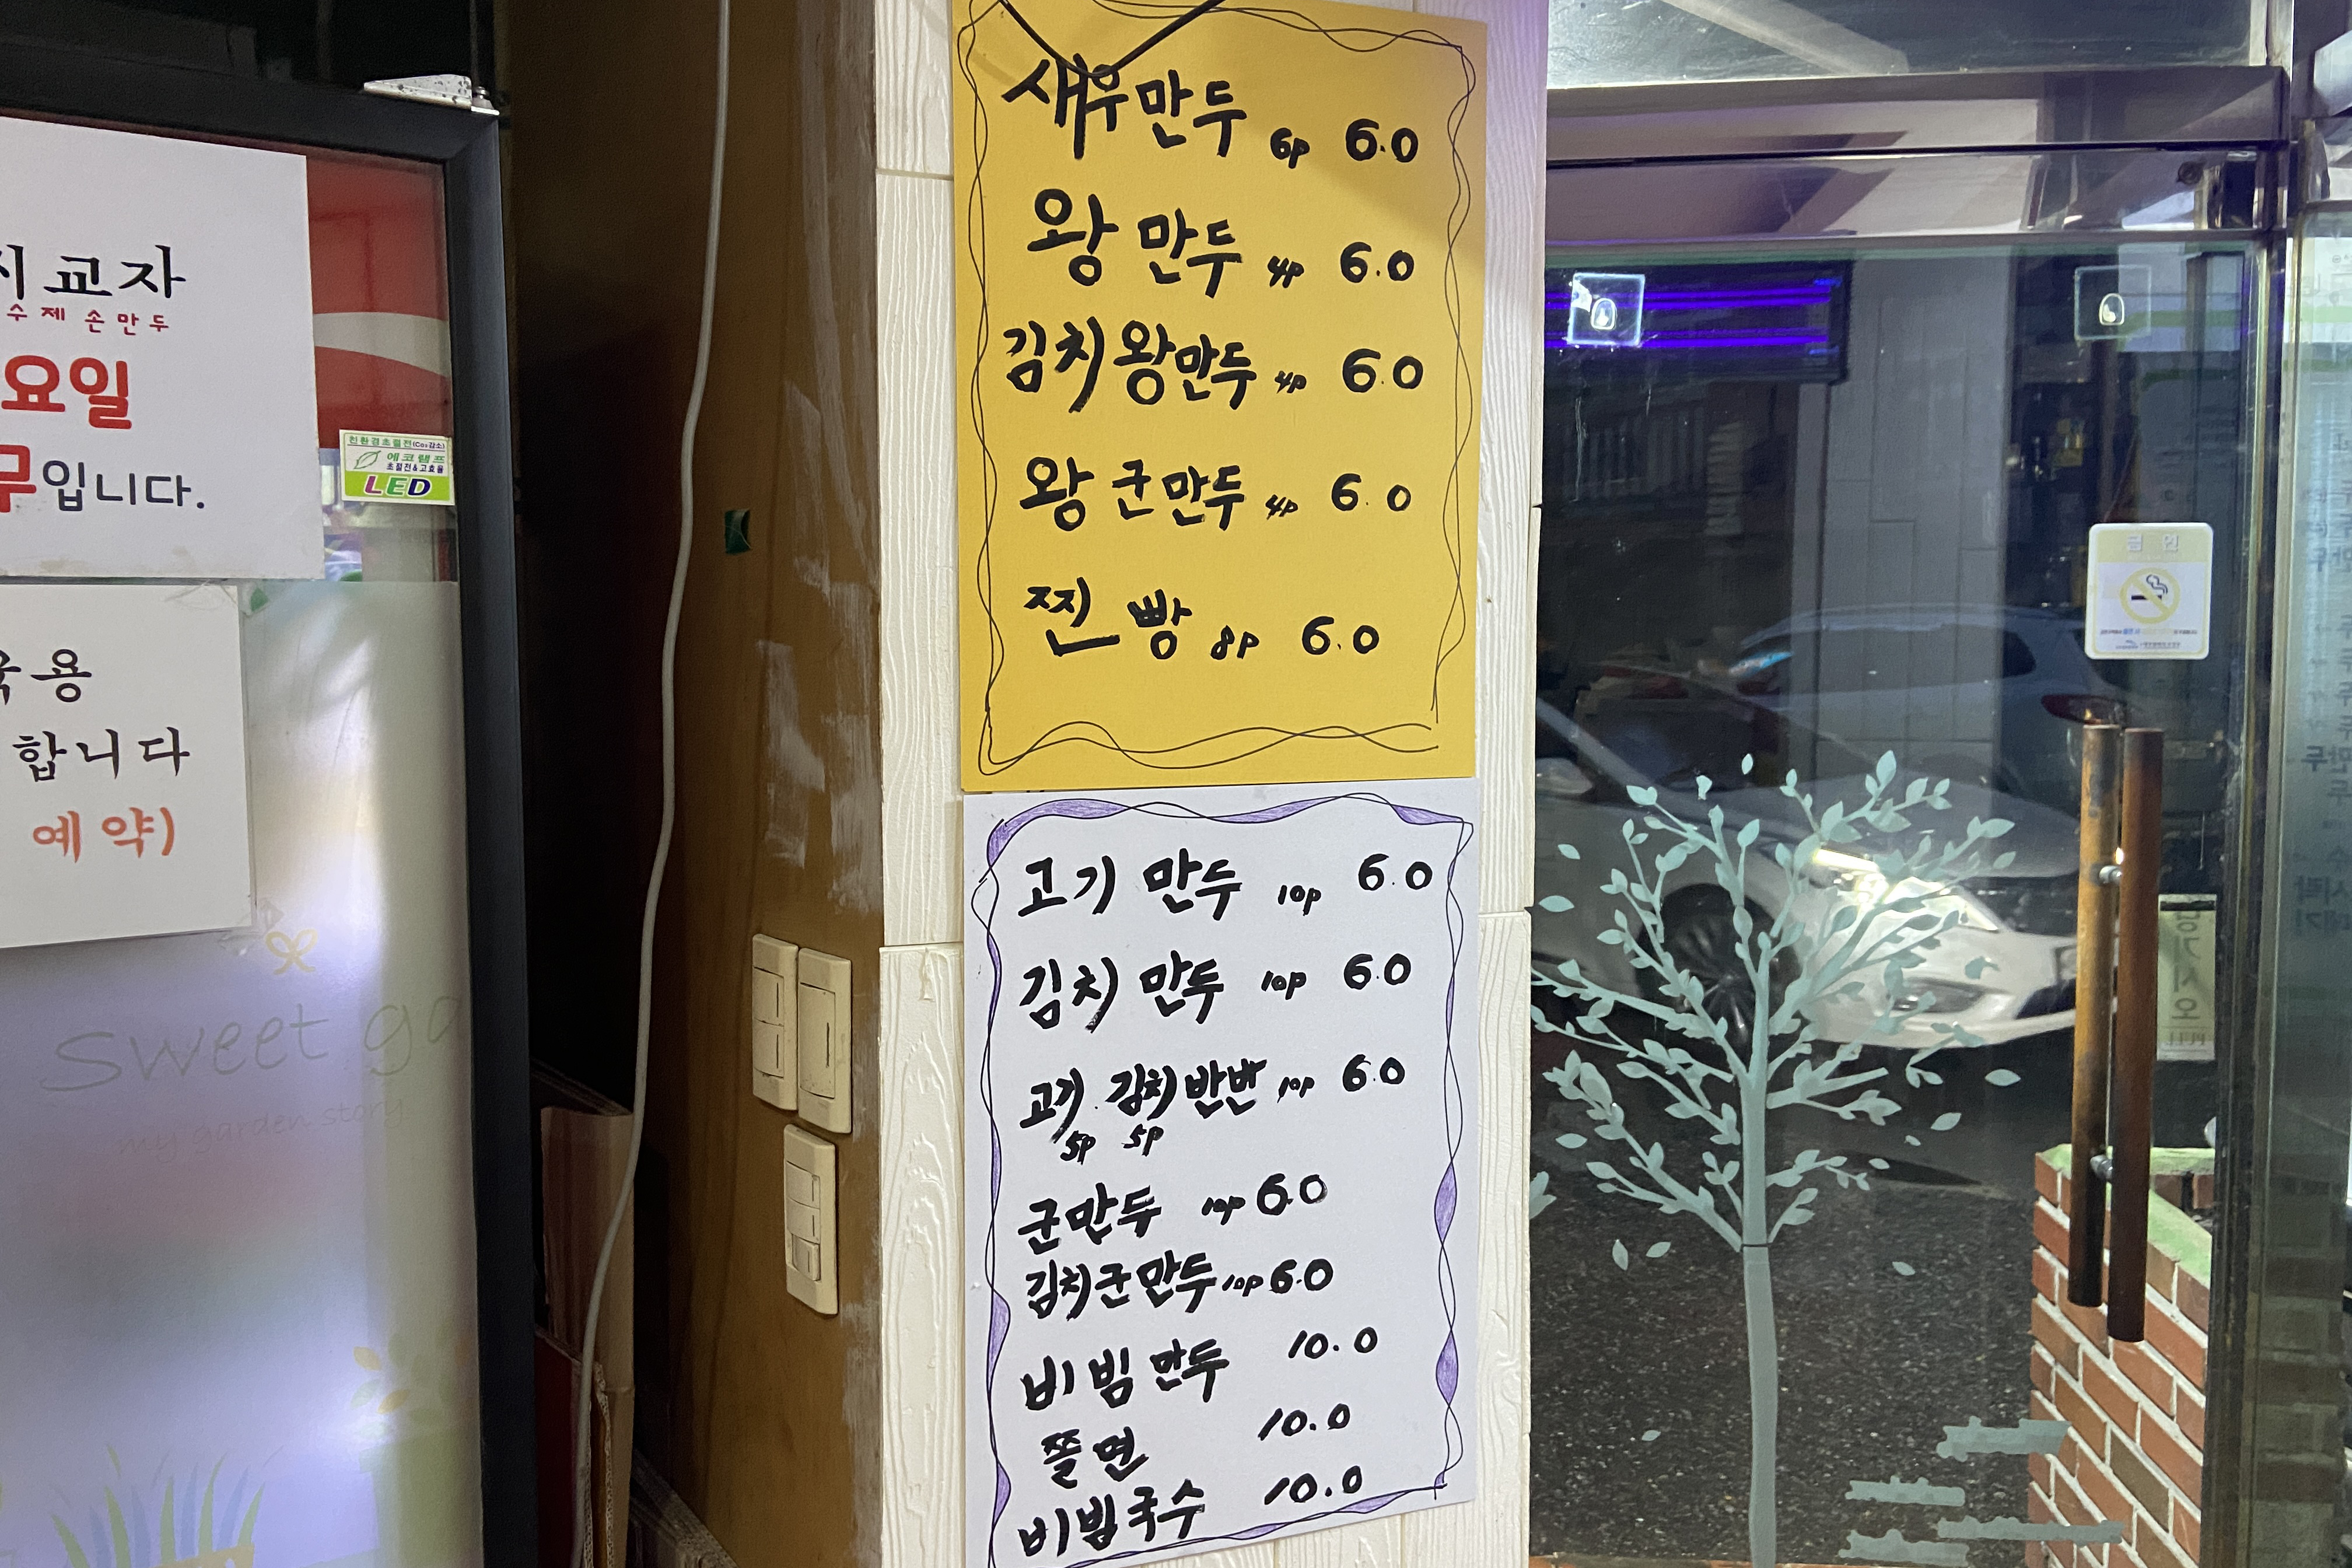 교자
수제 손만두
요일
무입니다.
친환경초절전(Co₂감소)
에코램프
초절전&고효율
LED
용
합니다
예약)
sweet ga
my garden story
새우만두 6p 6.0
왕만두 4p 6.0
김치왕만두 4p 6.0
왕군만두 4p 6.0
찐빵 8p 6.0
고기만두 10p 6.0
김치만두 10p 6.0
고기.김치반반 10p 6.0
5p 5p
군만두 10p 6.0
김치군만두 10p 6.0
비빔만두 10.0
쫄면 10.0
비빔국수 10.0
금연